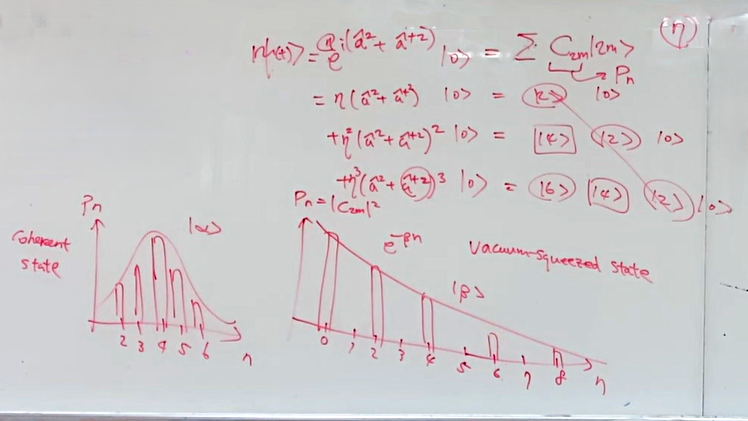 |ψ(t)⟩ = e^{η i(â² + â^{+2})} |0⟩ = Σ C_{2m}|2m⟩ (η)
→ Pn
= η(â² + â^{+2}) |0⟩ = |2⟩ |0⟩
+η²(â² + â^{+2})² |0⟩ = |4⟩ |2⟩ |0⟩
+η³(â² + â^{+2})³ |0⟩ = |6⟩ |4⟩ |2⟩ |0⟩
Pn
coherent state
|α⟩
2 3 4 5 6 n
Pn = |C_{2m}|²
e^{-βn}
Vacuum-squeezed state
|β⟩
0 1 2 3 4 5 6 7 8 n